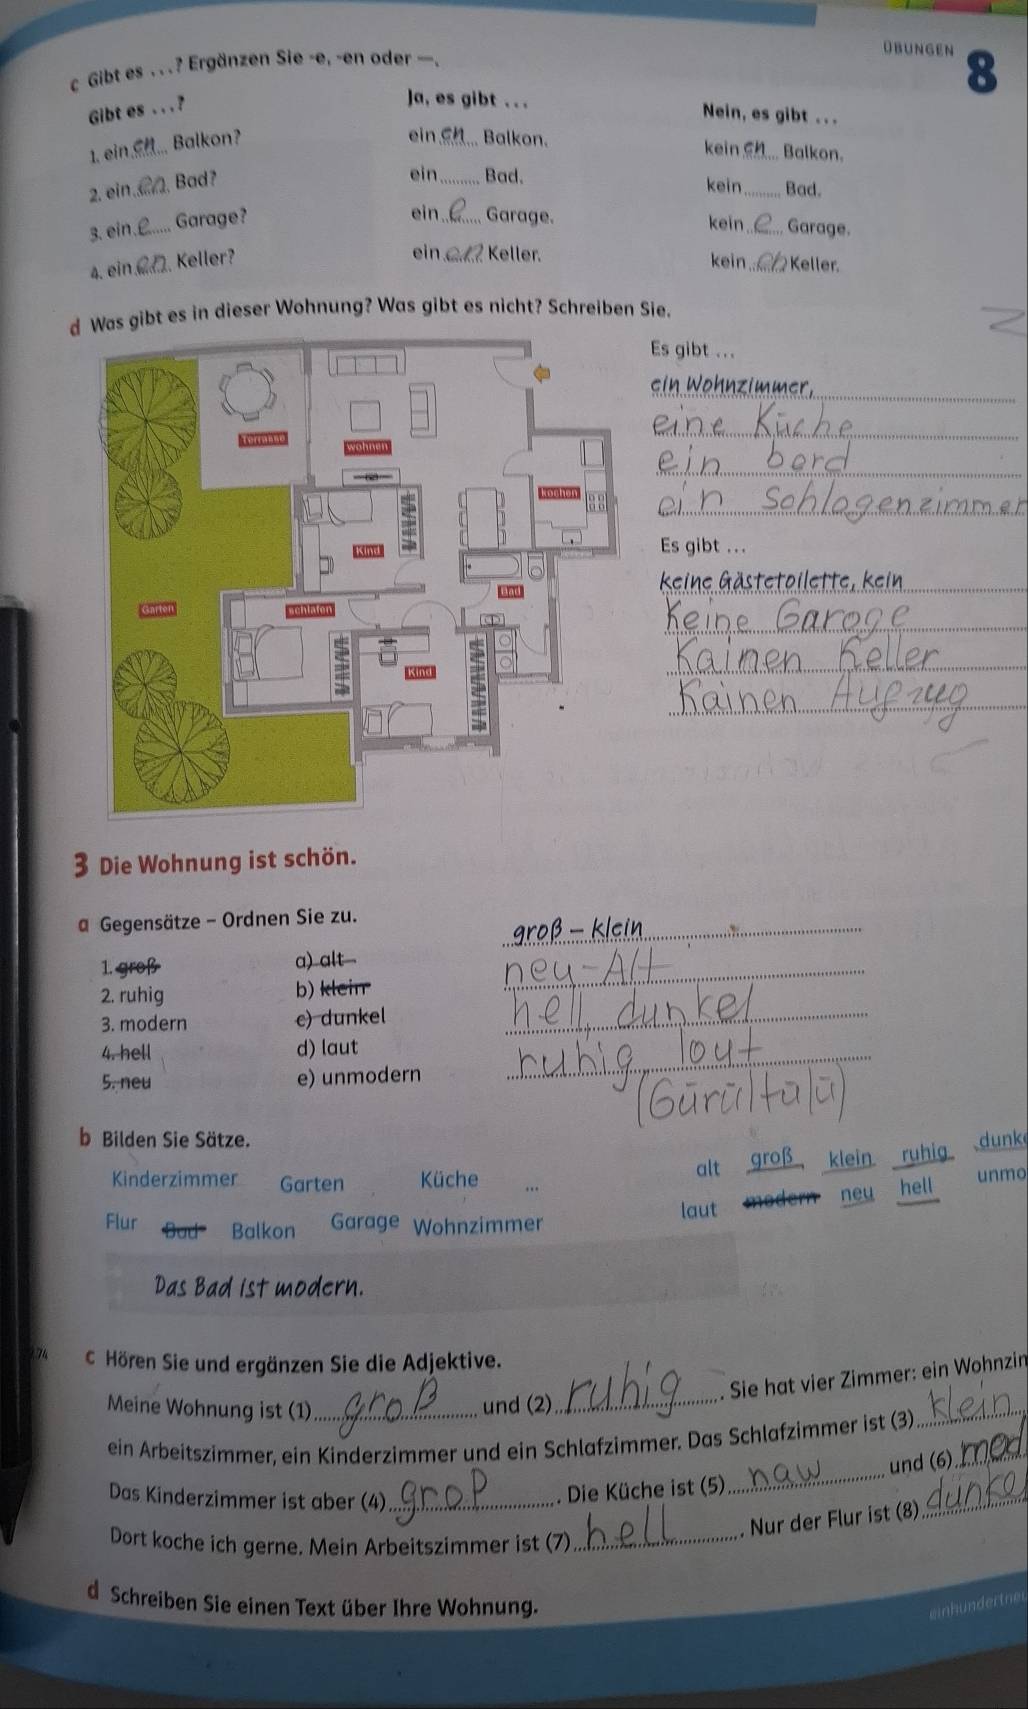 ÜBUNGEN
8
c Gibt es ...? Ergänzen Sie -e, -en oder –.
Gibt es ...? Ja, es gibt ... Nein, es gibt ...
1. ein en Balkon? ein en Balkon. kein en Balkon.
2. ein en Bad? ein......... Bad. kein......... Bad.
3. ein e Garage? ein e Garage. kein e Garage.
4. ein en Keller? ein en Keller. kein en Keller.
d Was gibt es in dieser Wohnung? Was gibt es nicht? Schreiben Sie.
Es gibt ...
ein Wohnzimmer,
eine Küche
ein bard
ein Schlagenzimmer
Es gibt ...
keine Gästetoilette, kein
Keine Garage
Kainen Keller
Kainen Aufzug
Terrasse
wohnen
kochen
Kind
Bad
Garten
schlafen
Kind
3 Die Wohnung ist schön.
a Gegensätze – Ordnen Sie zu.
1. groß a) alt groß – klein
2. ruhig b) klein neu - Alt
3. modern c) dunkel hell, dunkel
4. hell d) laut ruhig, lout
5. neu e) unmodern (Gürültülü)
b Bilden Sie Sätze.
Kinderzimmer Garten Küche ... alt groß klein ruhig dunke
Flur Bad Balkon Garage Wohnzimmer laut modern neu hell unmo
Das Bad ist modern.
74 c Hören Sie und ergänzen Sie die Adjektive.
Meine Wohnung ist (1) groß und (2) ruhig. Sie hat vier Zimmer: ein Wohnzin
ein Arbeitszimmer, ein Kinderzimmer und ein Schlafzimmer. Das Schlafzimmer ist (3) klein
Das Kinderzimmer ist aber (4) groß. Die Küche ist (5) naw und (6) mod
Dort koche ich gerne. Mein Arbeitszimmer ist (7) hell. Nur der Flur ist (8) dunke
d Schreiben Sie einen Text über Ihre Wohnung.
einhundertneu